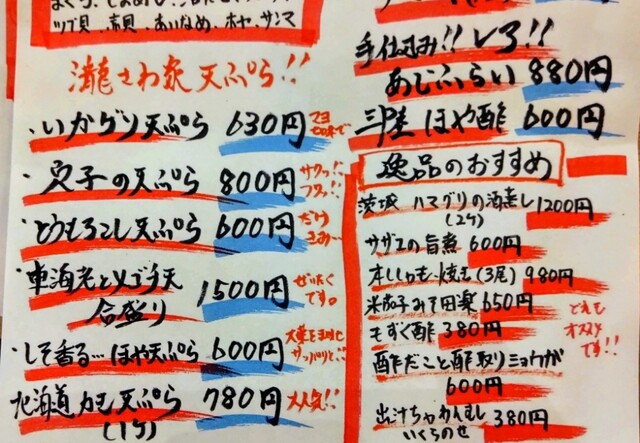 ツブ貝、赤貝、あいなめ、ホヤ、サンマ
さわ家 天ぷら!!
・いかゲソ天ぷら 630円
・穴子の天ぷら 800円
サクっ!!
フワッ!!
・とうもろこし天ぷら 600円
・車海老とメゴチ天
合盛り 1500円
ぜいたく
です。
・しそ香る…ほや天ぷら 600円
大葉をまぜて
サッパリと!!
北海道カキ天ぷら 780円
(1ケ)
大人気!!
手仕込み!!
あじふらい 880円
三陸 ほや酢 600円
逸品のおすすめ
茨城 ハマグリの酒蒸し 1200円
(2ケ)
サザエの旨煮 600円
本ししゃも焼き(3尾) 980円
米茄子みそ田楽 650円
もずく酢 380円
どれも
オススメ
です!!
酢だこと酢取りミョウガ
600円
出汁ちゃわんむし
いくらのせ 380円